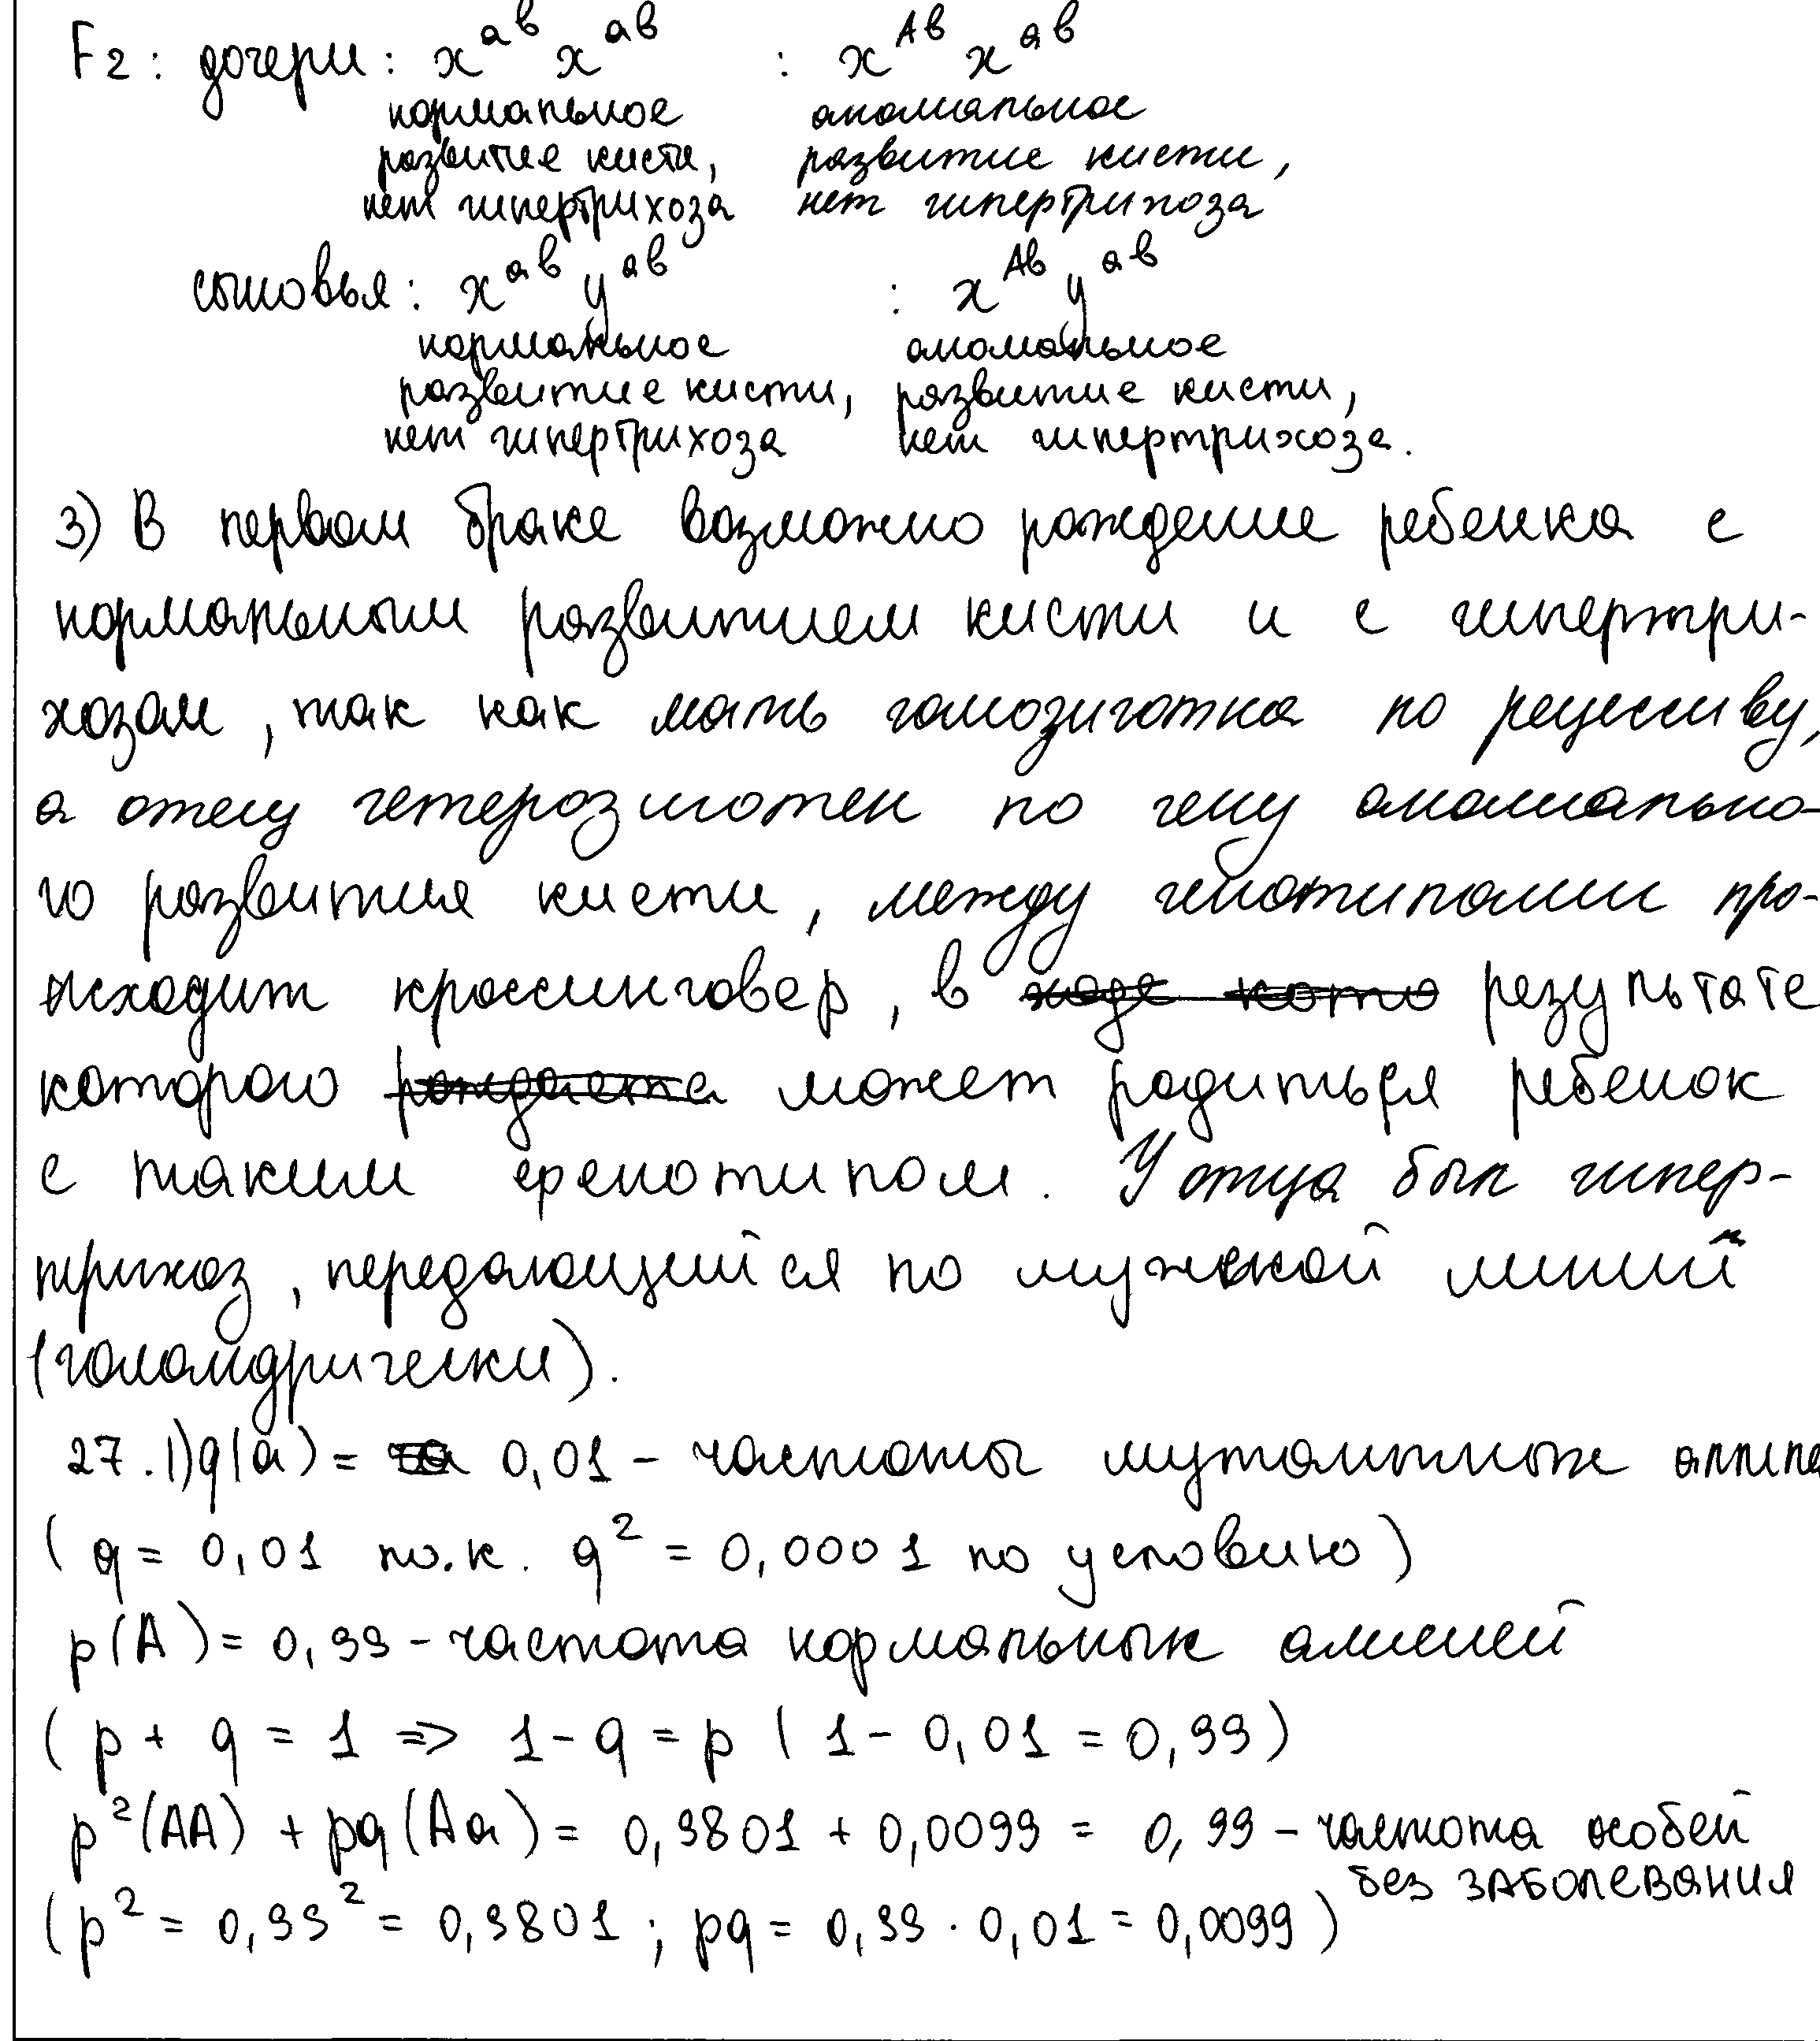 F2: дочери: x^ав x^ав : x^Ав x^ав
нормальное аномальное
развитие кисти, развитие кисти,
нет гипертрихоза нет гипертрихоза
сыновья: x^ав y^ав : x^Ав y^ав
нормальное аномальное
развитие кисти, развитие кисти,
нет гипертрихоза нет гипертрихоза.
3) В первом браке возможно рождение ребенка с
нормальным развитием кисти и с гипертри-
хозом, так как мать гомозиготна по рецессиву,
а отец гетерозиготен по гену аномально-
го развития кисти, между генотипами про-
исходит кроссинговер, в ходе кото результате
которого рождается может родиться ребенок
с таким фенотипом. У отца был гипер-
трихоз, передающийся по мужской линии
(голандрически).
27. 1) q(a) = 0,01 - частоты мутантных аллеле
(q = 0,01 т.к. q² = 0,0001 по условию)
p(A) = 0,99 - частота нормальных аллелей
(p + q = 1 => 1 - q = p (1 - 0,01 = 0,99)
p²(AA) + pq(Aa) = 0,9801 + 0,0099 = 0,99 - частота особей
без заболевания
(p² = 0,99² = 0,9801; pq = 0,99 · 0,01 = 0,0099)